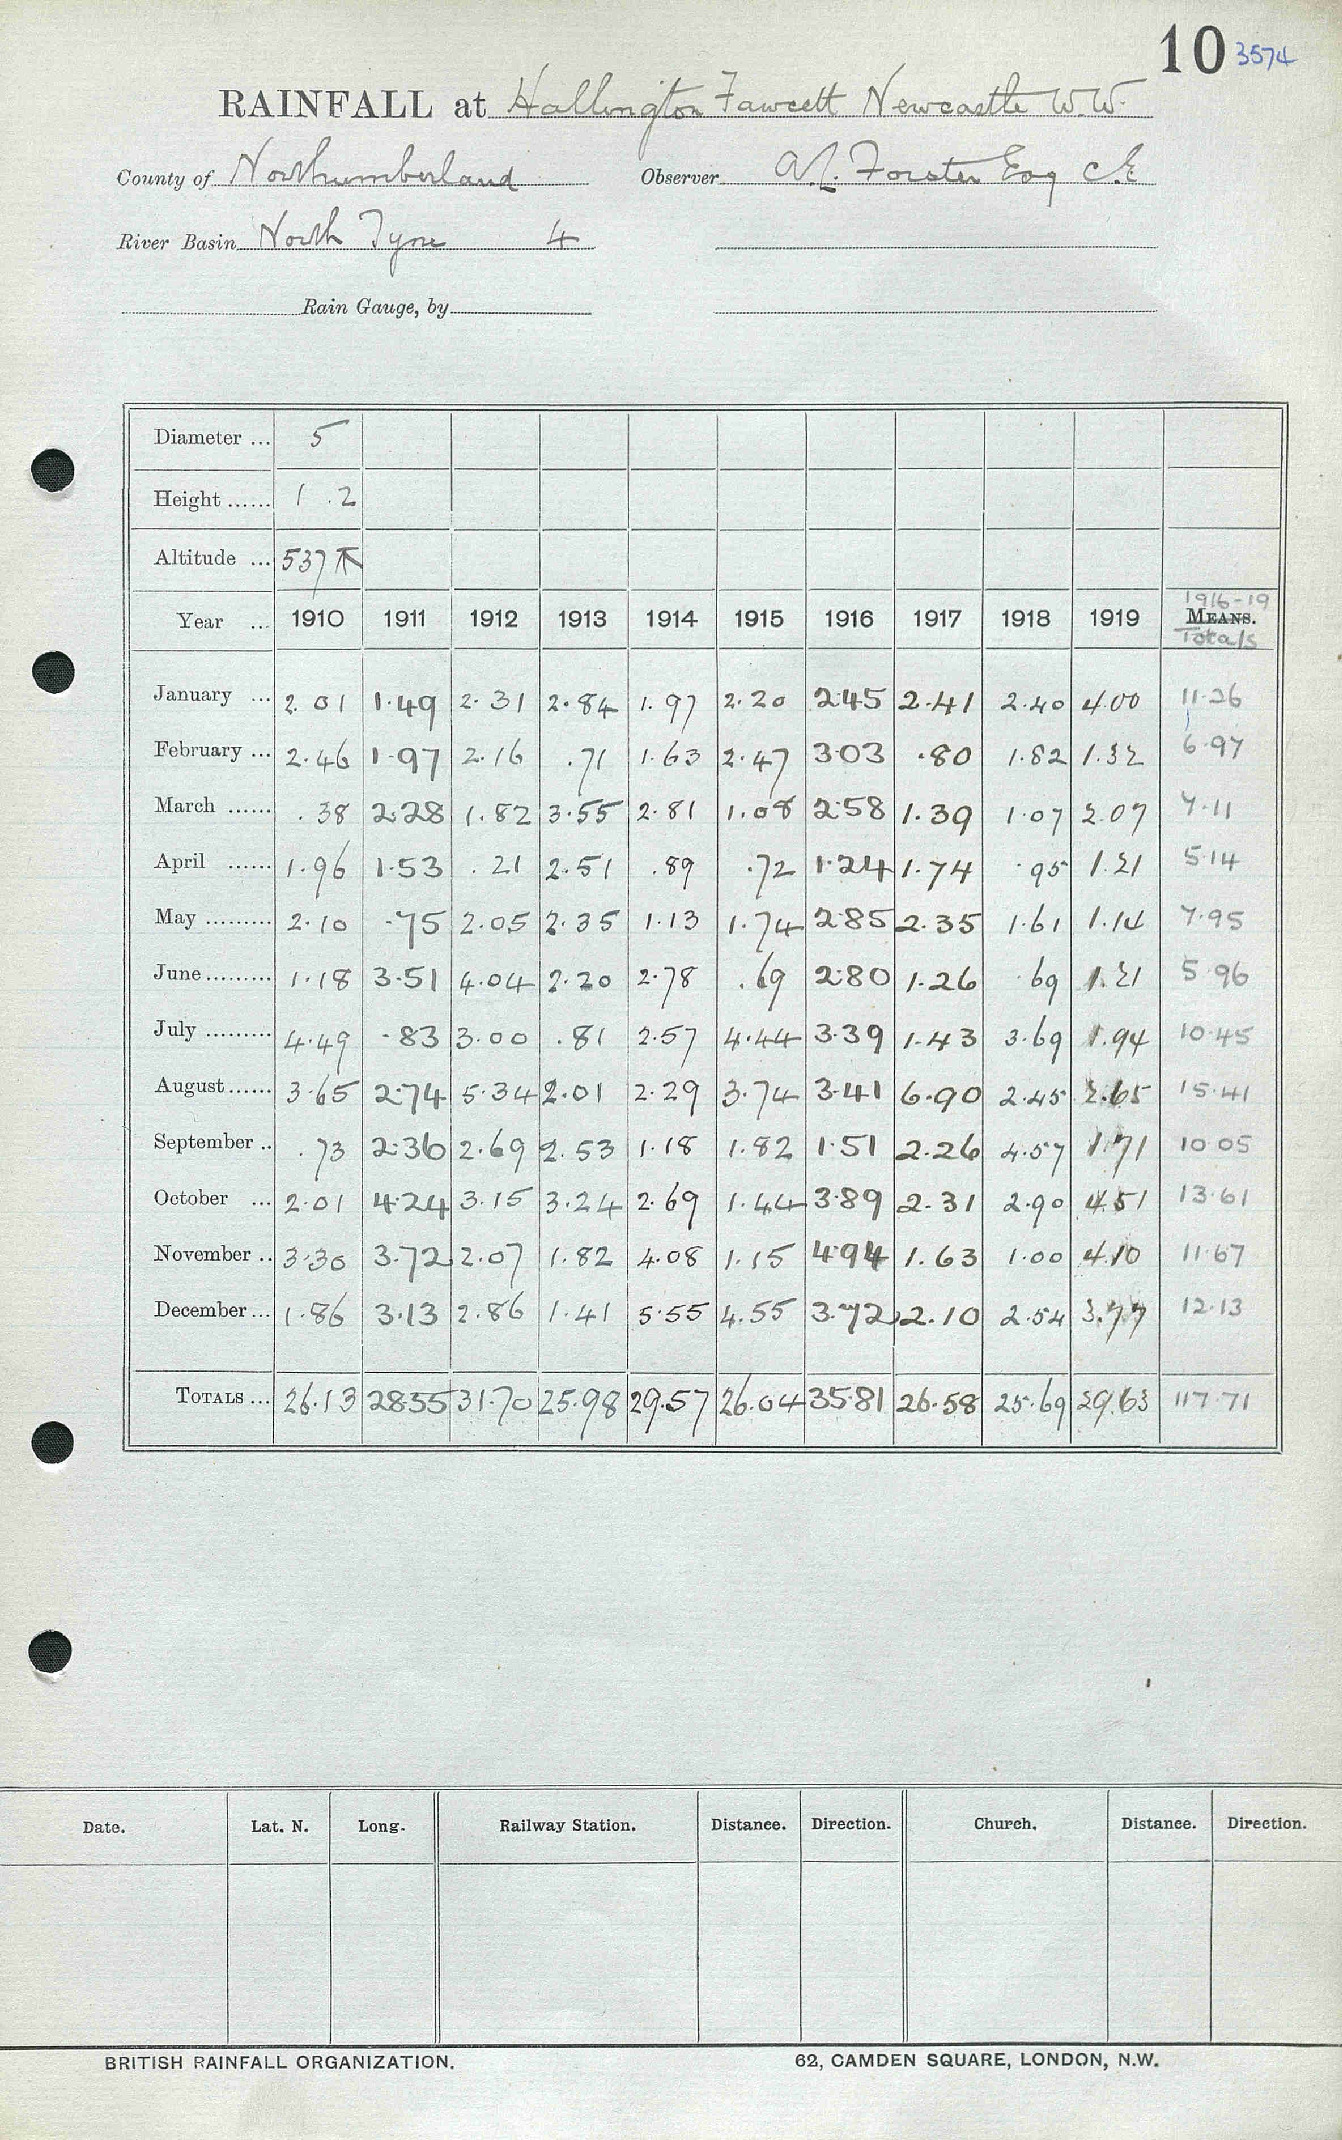 10 3574
RAINFALL at Hallington Fawcett Newcastle W.W.
County of Northumberland Observer A.C. Forster Esq C.E
River Basin North Tyne 4
Rain Gauge, by
Diameter ... 5
Height ...... 1 . 2
Altitude ... 537
1916-19
Year ... 1910 1911 1912 1913 1914 1915 1916 1917 1918 1919 MEANS.
Totals
January ... 2.01 1.49 2.31 2.84 1.97 2.20 2.45 2.41 2.40 4.00 11.26
February ... 2.46 1.97 2.16 .71 1.63 2.47 3.03 .80 1.82 1.32 6.97
March ...... .38 2.28 1.82 3.55 2.81 1.08 2.58 1.39 1.07 2.07 7.11
April ...... 1.96 1.53 .21 2.51 .89 .72 1.24 1.74 .95 1.21 5.14
May ......... 2.10 .75 2.05 2.35 1.13 1.74 2.85 2.35 1.61 1.14 7.95
June ......... 1.18 3.51 4.04 2.20 2.78 .69 2.80 1.26 .69 1.21 5.96
July ......... 4.49 .83 3.00 .81 2.57 4.44 3.39 1.43 3.69 1.94 10.45
August ...... 3.65 2.74 5.34 2.01 2.29 3.74 3.41 6.90 2.45 2.65 15.41
September .. .73 2.36 2.69 2.53 1.18 1.82 1.51 2.26 4.57 1.71 10.05
October ... 2.01 4.24 3.15 3.24 2.69 1.44 3.89 2.31 2.90 4.51 13.61
November .. 3.30 3.72 2.07 1.82 4.08 1.15 4.94 1.63 1.00 4.10 11.67
December ... 1.86 3.13 2.86 1.41 5.55 4.55 3.72 2.10 2.54 3.77 12.13
TOTALS ... 26.13 28.55 31.70 25.98 29.57 26.04 35.81 26.58 25.69 29.63 117.71
Date. Lat. N. Long. Railway Station. Distance. Direction. Church. Distance. Direction.
BRITISH RAINFALL ORGANIZATION. 62, CAMDEN SQUARE, LONDON, N.W.